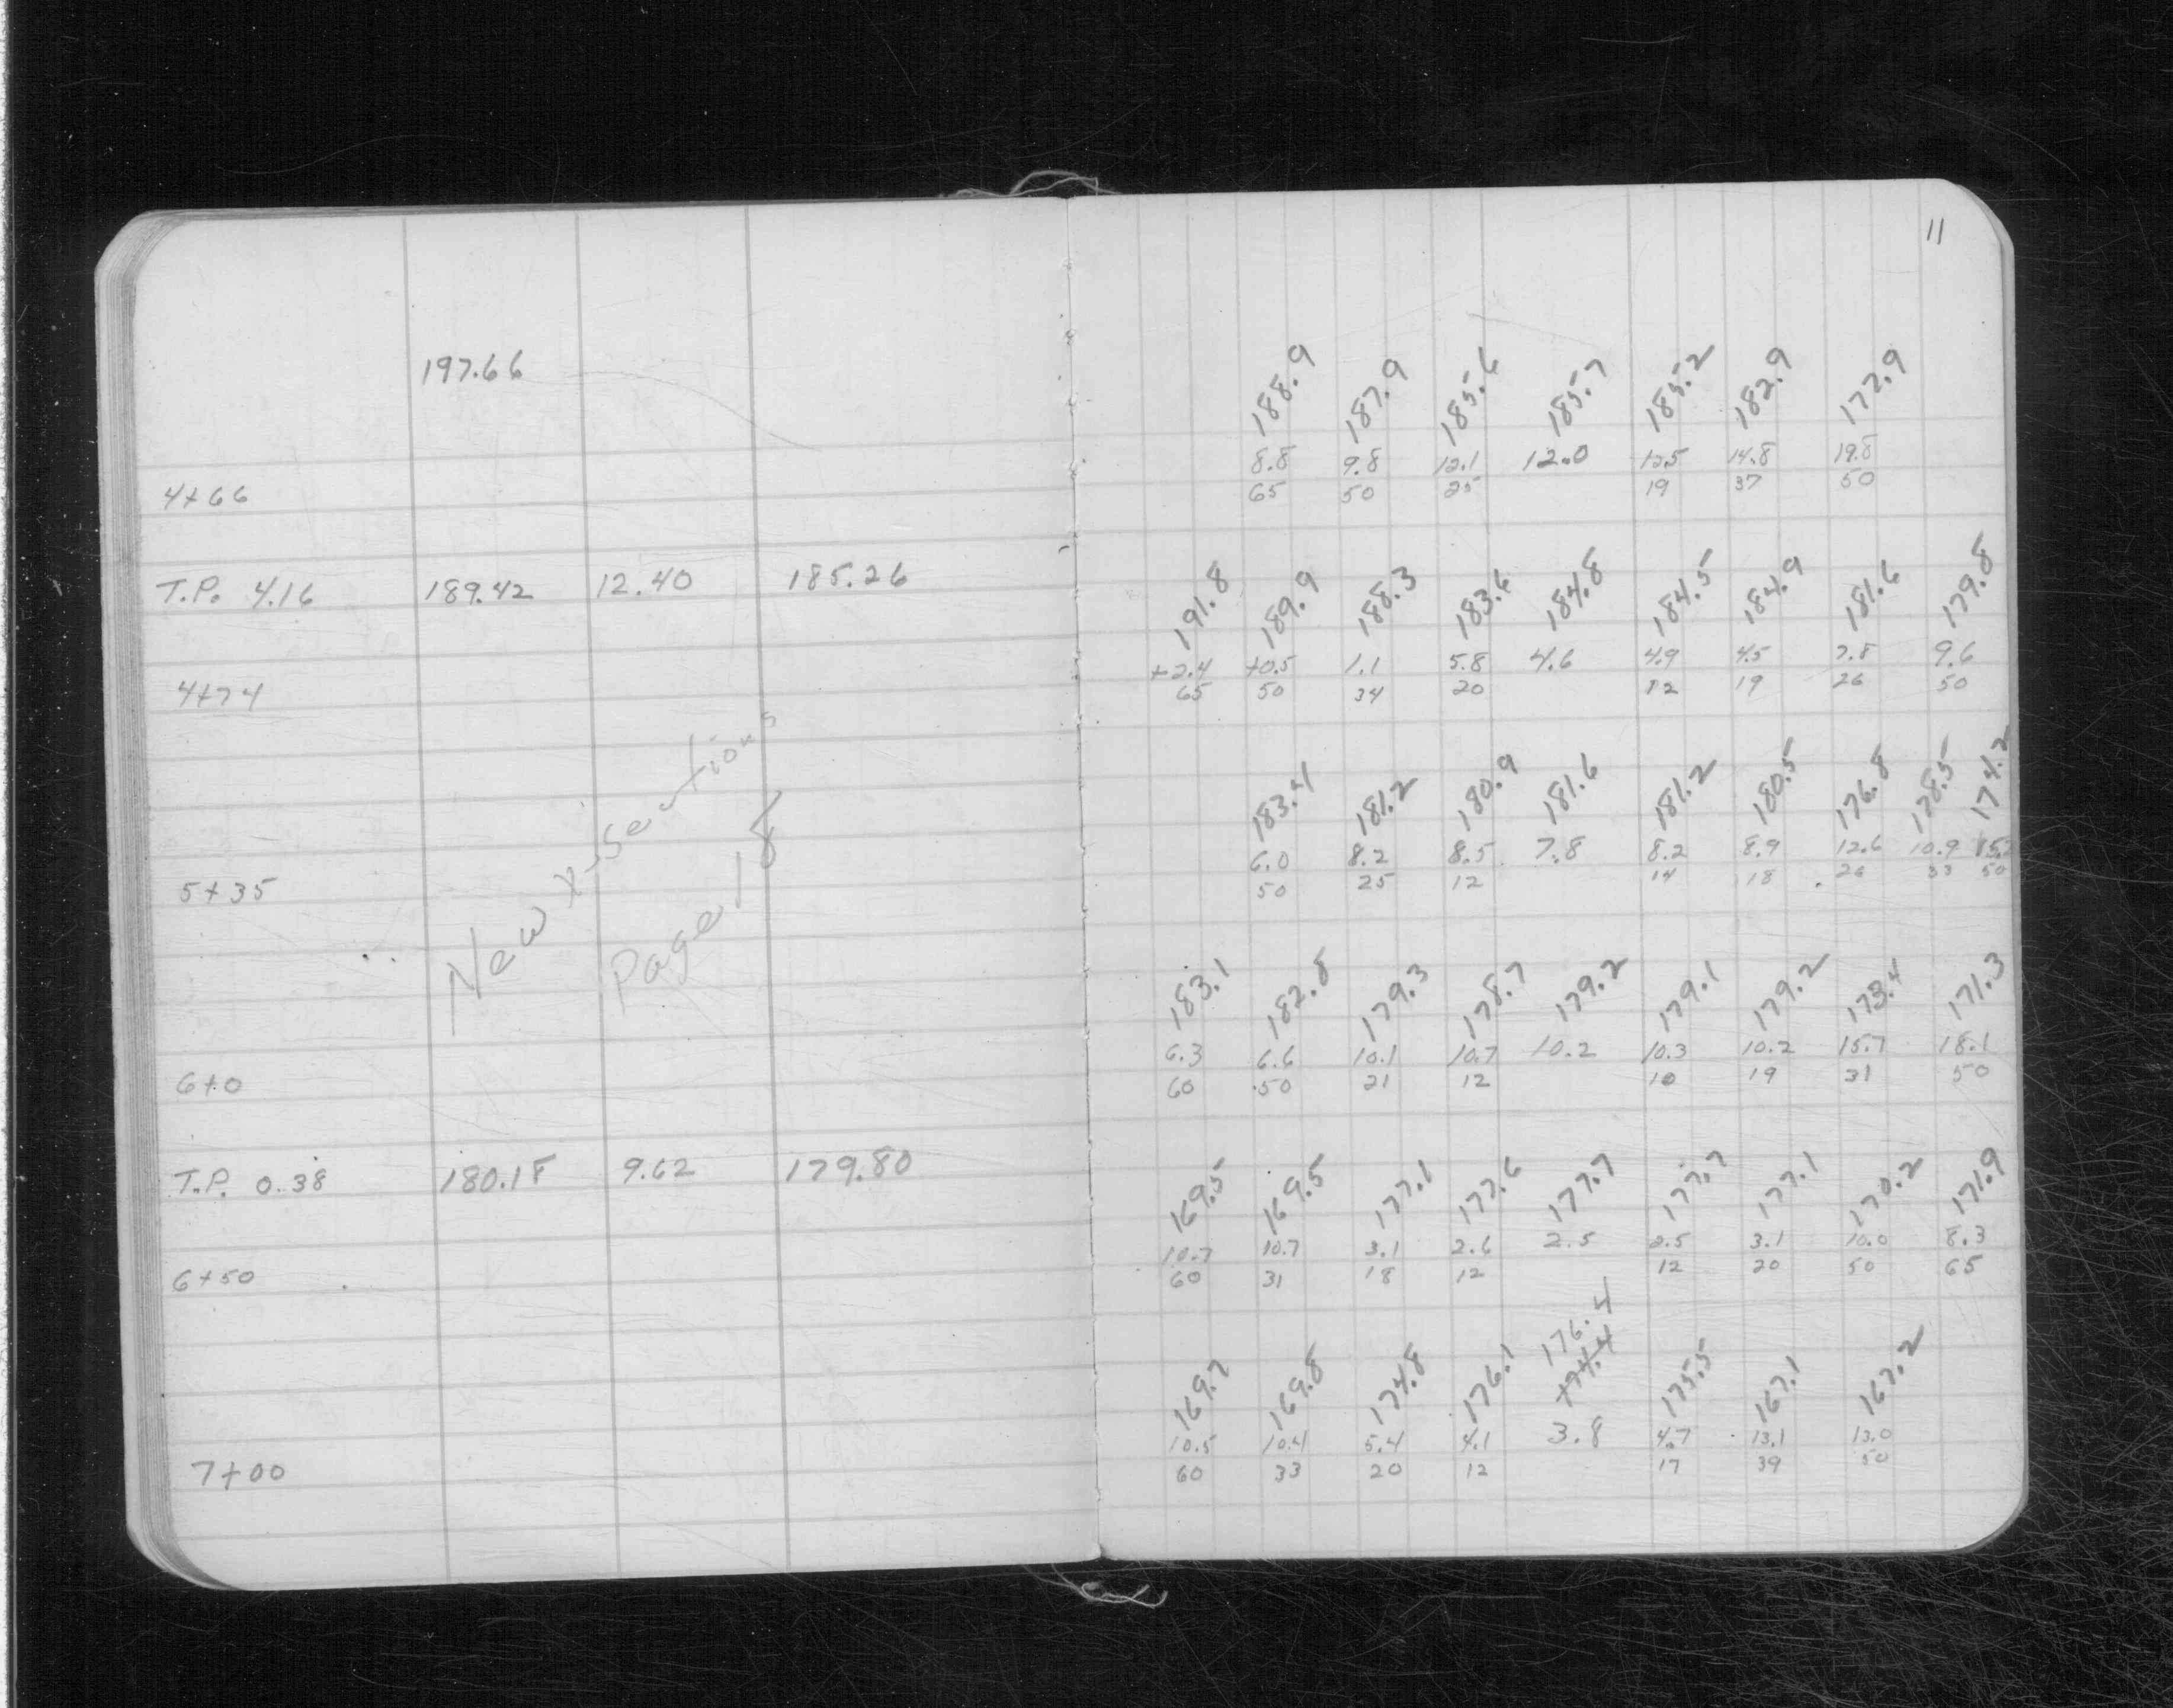 11
197.66
188.9 187.9 185.6 185.7 185.2 182.9 177.9
8.8 9.8 12.1 12.0 12.5 14.8 19.8
4+66 65 50 25 19 37 50
T.P. 4.16 189.42 12.40 185.26
191.8 189.9 188.3 183.6 184.8 184.5 184.9 181.6 179.8
+2.4 +0.5 1.1 5.8 4.6 4.9 4.5 7.8 9.6
4+74 65 50 34 20 12 19 26 50
New x-sections
Page 18
183.4 181.2 180.9 181.6 181.2 180.5 176.8 178.5 174.2
6.0 8.2 8.5 7.8 8.2 8.9 12.6 10.9
5+35 50 25 12 14 18 26 33 50
183.1 182.8 179.3 178.7 179.2 179.1 179.2 173.4 171.3
6.3 6.6 10.1 10.7 10.2 10.3 10.2 15.7 18.1
6+0 60 50 21 12 10 19 31 50
T.P. 0.38 180.18 9.62 179.80
169.5 169.5 177.1 177.6 177.7 177.7 177.1 170.2 171.9
10.7 10.7 3.1 2.6 2.5 2.5 3.1 10.0 8.3
6+50 60 31 18 12 12 20 50 65
176.4
169.7 169.8 174.8 176.1 174.4 175.5 167.1 167.2
10.5 10.4 5.4 4.1 3.8 4.7 13.1 13.0
7+00 60 33 20 12 17 39 50